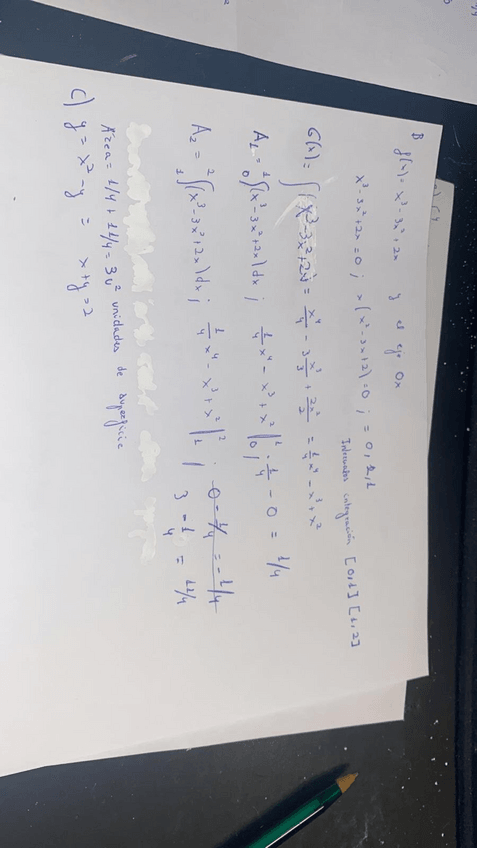 B f(x) = x³ - 3x² + 2x y el eje Ox
x³ - 3x² + 2x = 0 ; x(x² - 3x + 2) = 0 ; = 0, 2, 1
Intervalos integración [0,1] [1,2]
G(x) = ∫(x³ - 3x² + 2x = x⁴/4 - 3 x³/3 + 2x²/2 = 1/4 x⁴ - x³ + x²
A₁ = ₀¹∫(x³ - 3x² + 2x) dx ; 1/4 x⁴ - x³ + x² |₀¹ = 1/4 - 0 = 1/4
A₂ = ₁²∫(x³ - 3x² + 2x) dx ; 1/4 x⁴ - x³ + x² |₁² ; 0 - 1/4 = - 1/4
3 - 1/4 = 11/4
Área = 1/4 + 11/4 = 3u² unidades de superficie
C) y = x² - y = x + y = 2